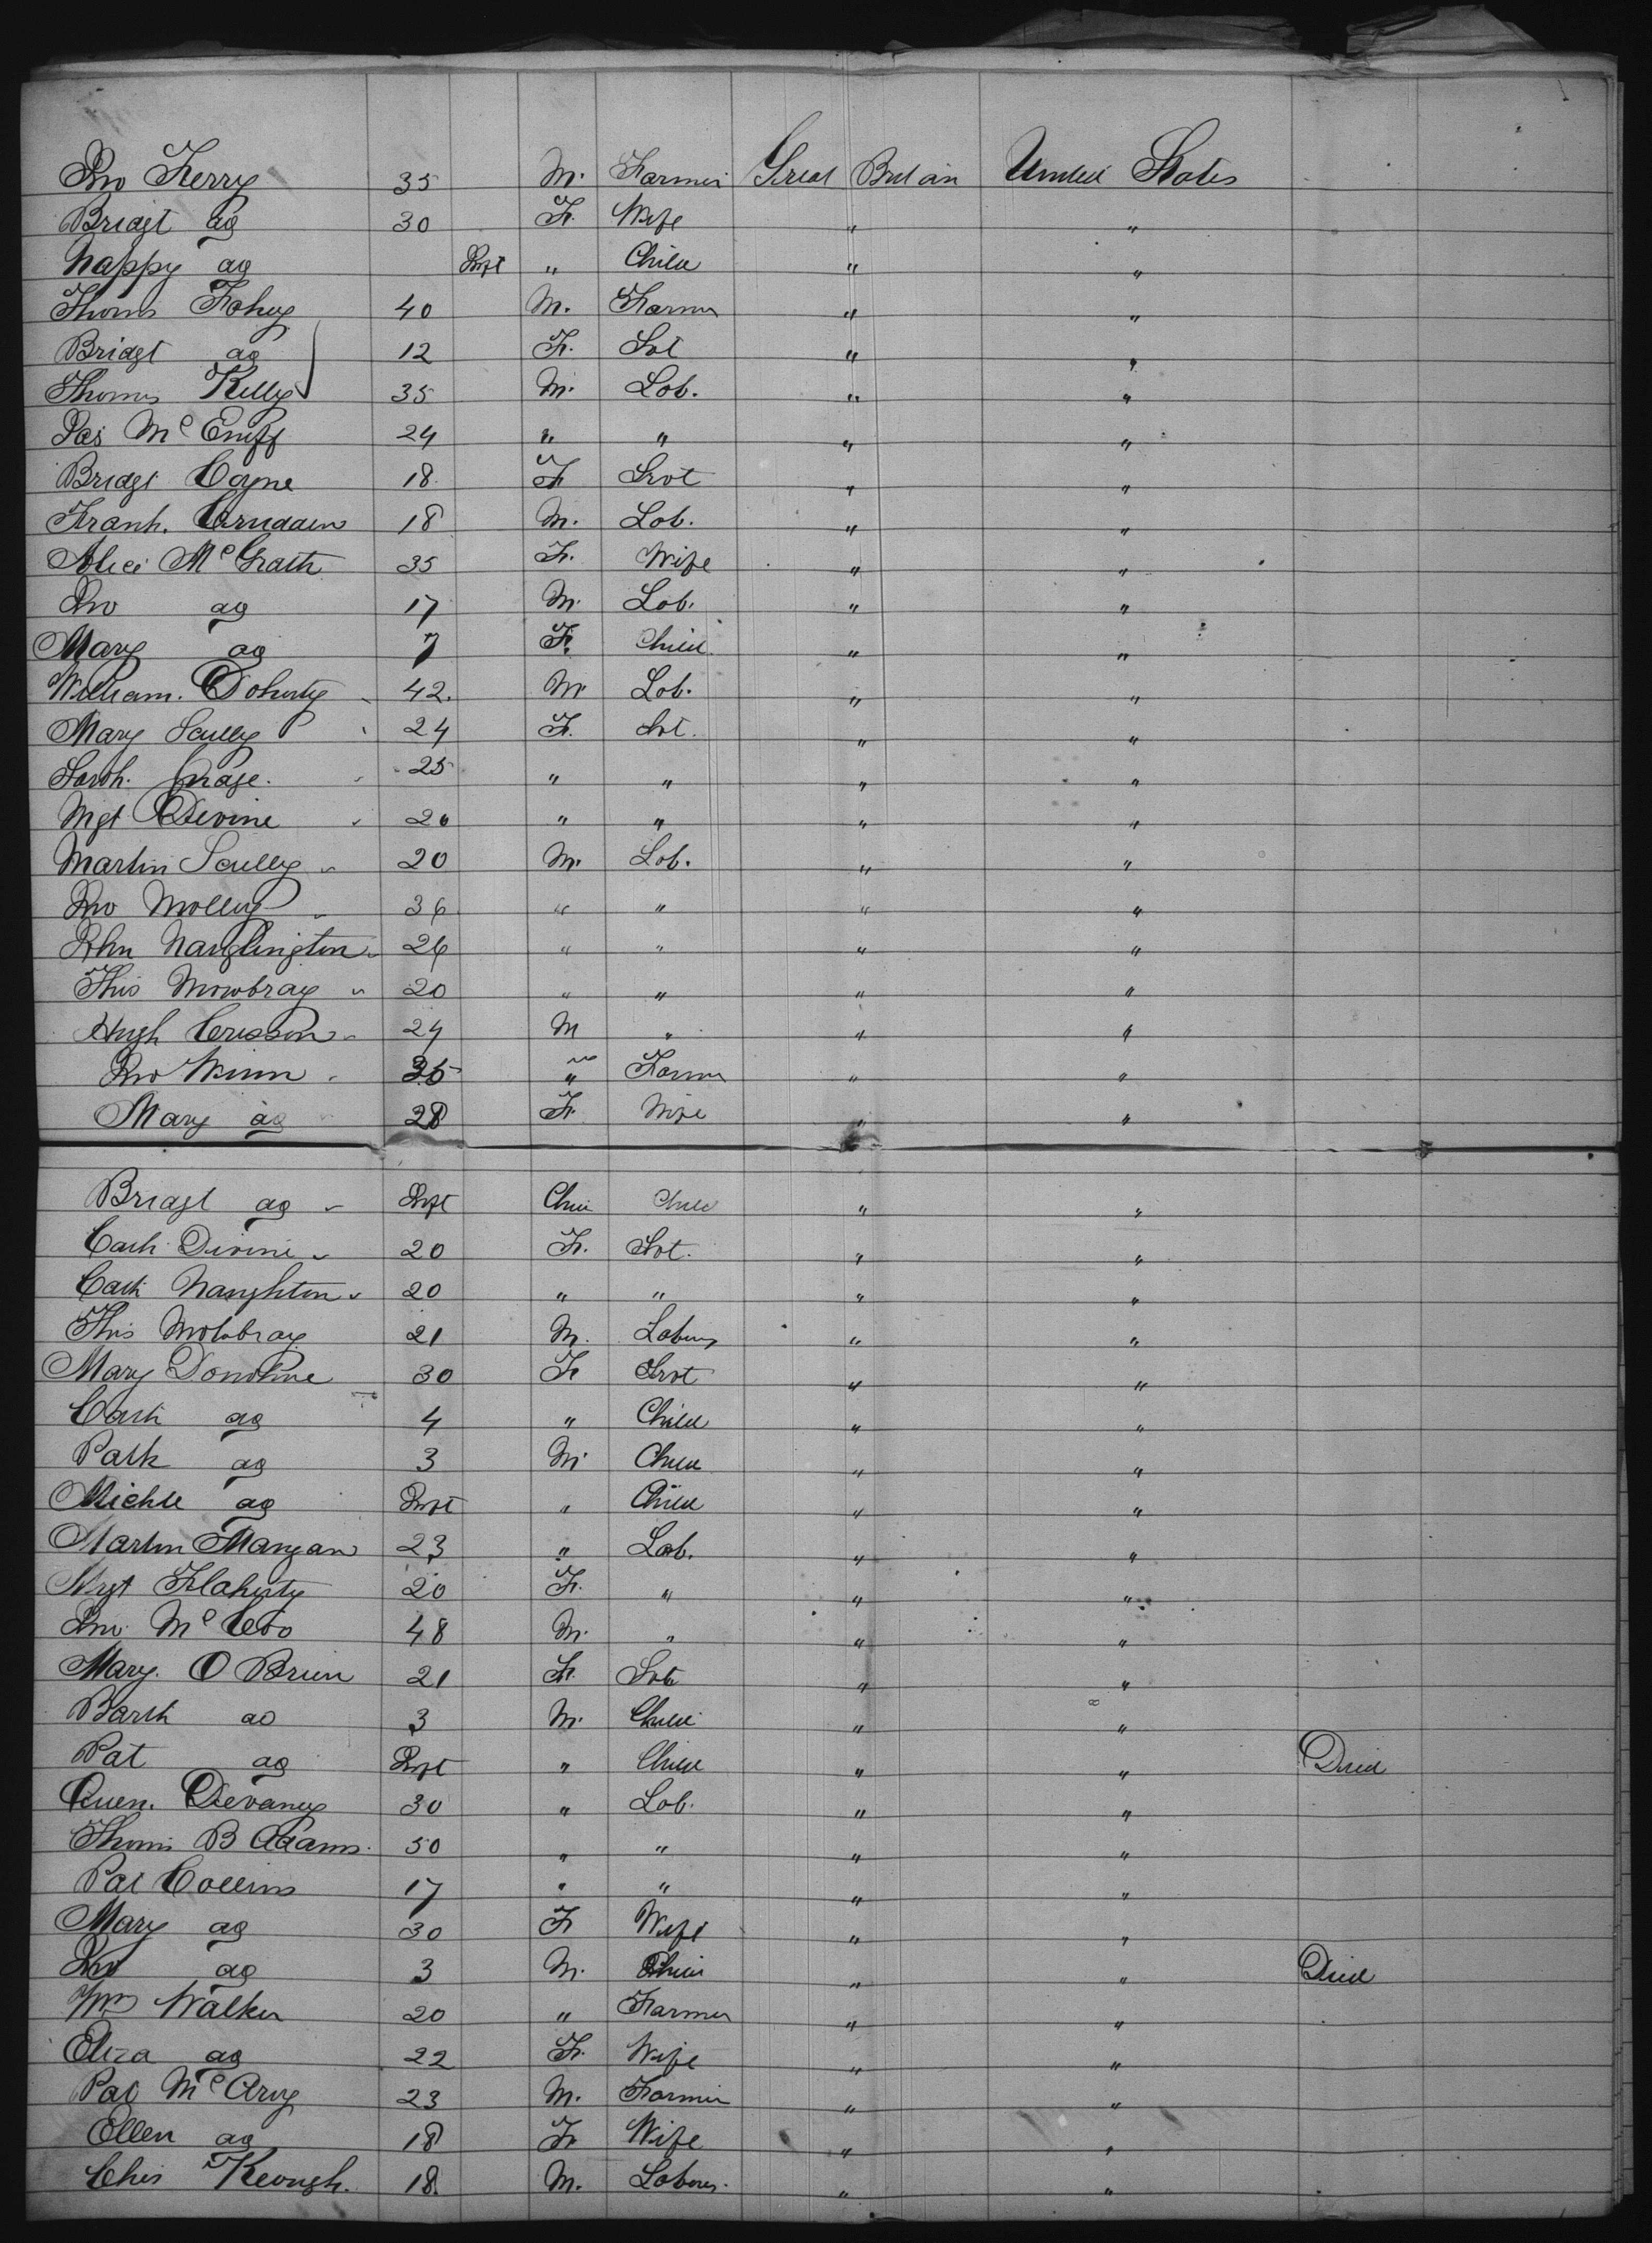 Jno Kerry 35 M. Farmer Great Britain United States
Bridgt do 30 F. Wife " "
Nappy do Inft " Child " "
Thoms Fahey 40 M. Farmer " "
Bridgt do 12 F. Svt " "
Thomas Kelly 35 M. Lab. " "
Jas McEniff 24 " " " "
Bridgt Coyne 18 F Srvt " "
Frank. 18 M. Lab. " "
Alice McGrath 35 F. Wife " "
Jno do 17 M. Lab. " "
Mary do 7 F. Child " "
William. Doherty 42. M Lab. " "
Mary Scully 24 F. Svt. " "
Sarah. 25 " " " "
Mgt Devine 20 " " " "
Martin Scully 20 M. Lab. " "
Jno Molloy 36 " " " "
John Naughington 26 " " " "
Ths Mowbray 20 " " " "
Hugh Crisson 24 M " " "
Jno Winn 35 " Farmer " "
Mary do 28 F. Wife " "
Bridgt do Inft Chil Child " "
Cath Divine 20 F. Svt. " "
Cath Naughton 20 " " " "
Ths Mowbray 21 M. Laburer " "
Mary Donohue 30 F Srvt " "
Cath do 4 " Child " "
Patk do 3 M Child " "
Michle do Inft " Child " "
Martin Mangan 23 " Lab. " "
Mgt Flaherty 20 F. " " "
Jno McCoo 48 M. " " "
Mary. O Brien 21 F. Svt " "
Barth do 3 M. Child " "
Pat do Inft " Child " " Died
Owen. Devaney 30 " Lab. " "
Thoms B Adams. 50 " " " "
Pat Collins 17 " " " "
Mary do 30 F Wife " "
Jno do 3 M. Child " " Died
Wm Walker 20 " Farmer " "
Eliza do 22 F. Wife " "
Pat McArvy 23 M. Farmer " "
Ellen do 18 F Wife " "
Chis Keough. 18. M. Laborer. " "